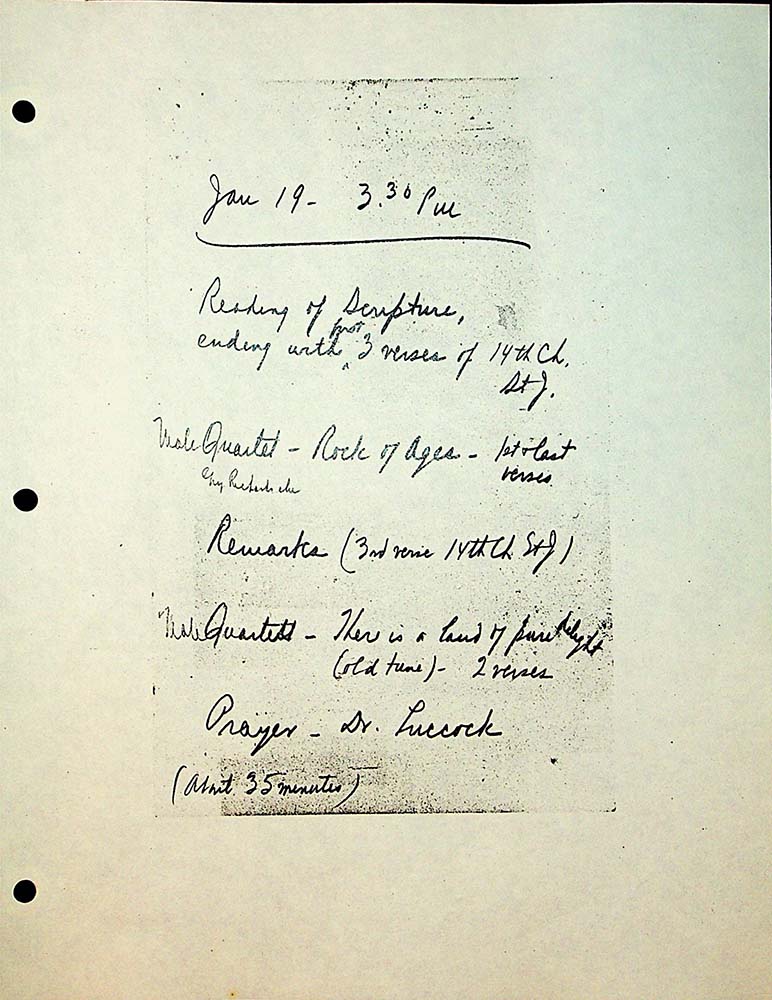 Jan 19 - 3.30 Pm
Reading of Scripture,
first
ending with ^ 3 verses of 14th Ch.
St J.
Male Quartet - Rock of Ages - 1st & last
verses
Remarks (3rd verse 14th Ch St J)
Male Quartett - There is a land of pure delight
(old tune) - 2 verses
Prayer - Dr. Luccock
(About 35 minutes)